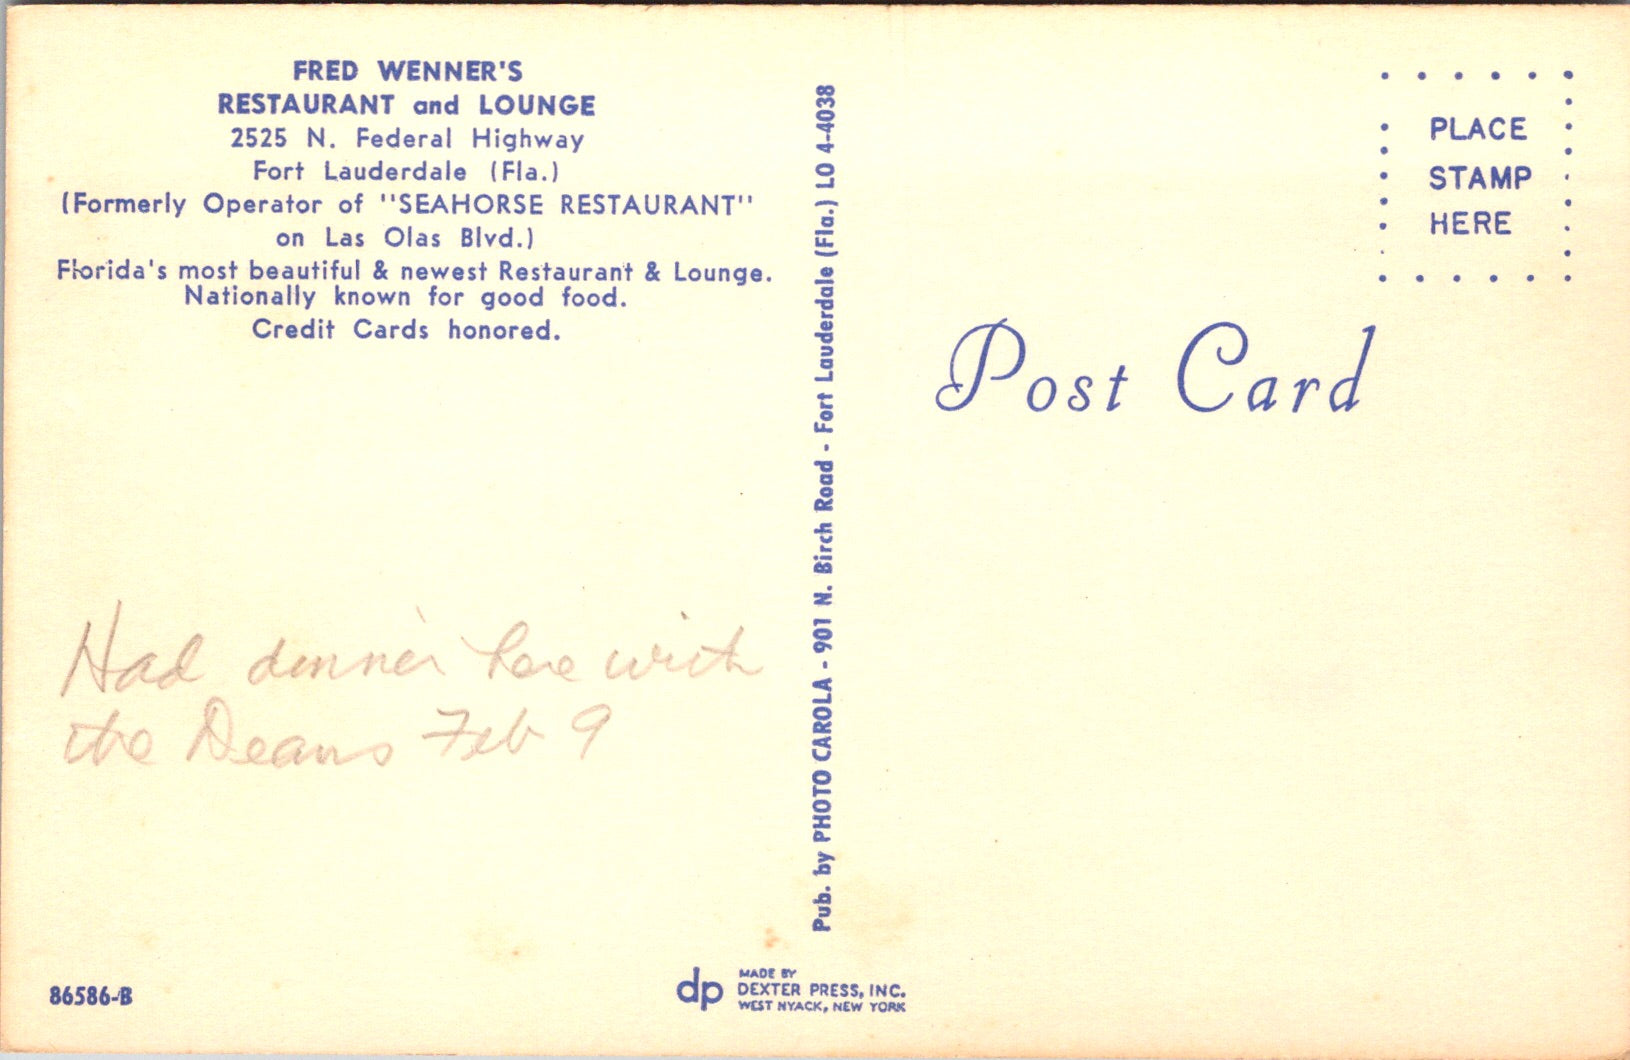 FRED WENNER'S
RESTAURANT and LOUNGE
2525 N. Federal Highway
Fort Lauderdale (Fla.)
(Formerly Operator of "SEAHORSE RESTAURANT"
on Las Olas Blvd.)
Florida's most beautiful & newest Restaurant & Lounge.
Nationally known for good food.
Credit Cards honored.
Had dinner here with
the Deans Feb 9
86586-B
Pub. by PHOTO CAROLA - 901 N. Birch Road - Fort Lauderdale (Fla.) LO 4-4038
dp
MADE BY
DEXTER PRESS, INC.
WEST NYACK, NEW YORK
PLACE
STAMP
HERE
Post Card